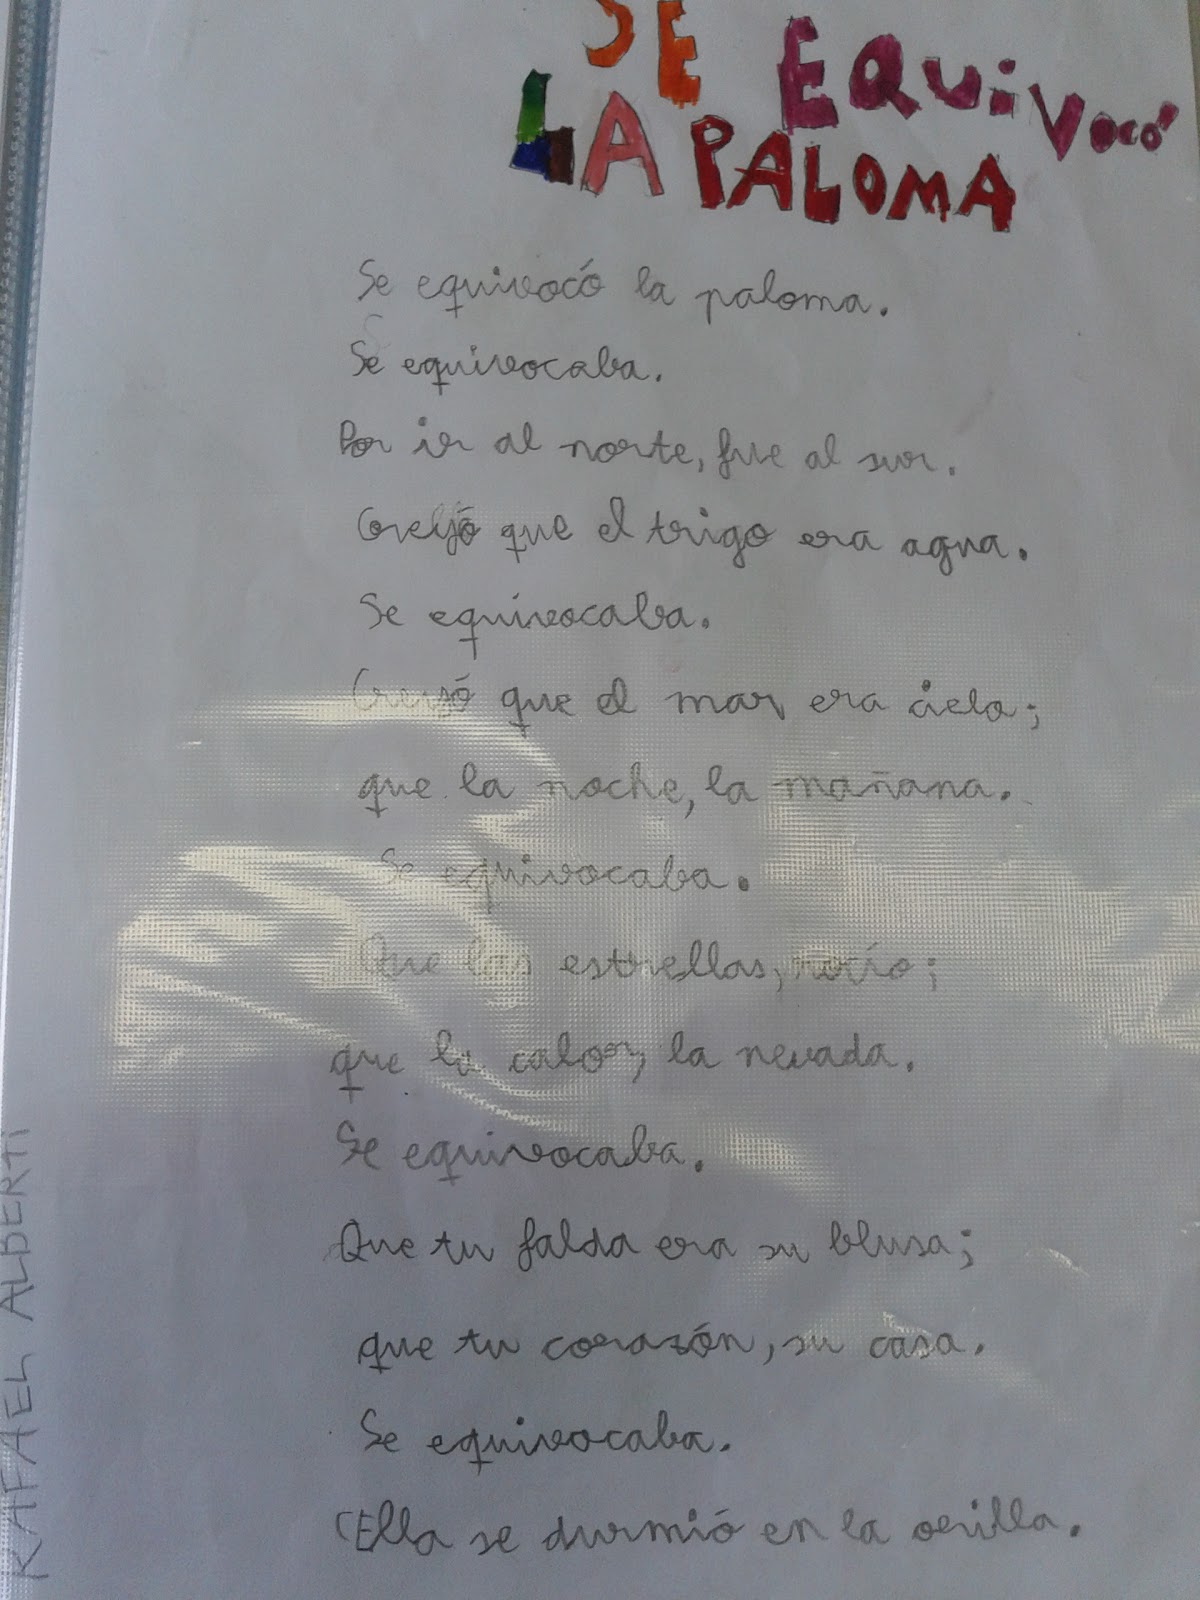 SE EQUiVOCÓ
LA PALOMA
Se equivocó la paloma.
Se equivocaba.
Por ir al norte, fue al sur.
Creyó que el trigo era agua.
Se equivocaba.
Creyó que el mar era cielo;
que la noche, la mañana.
Se equivocaba.
Que las estrellas, rocío;
que la calor, la nevada.
Se equivocaba.
Que tu falda era su blusa;
que tu corazón, su casa.
Se equivocaba.
(Ella se durmió en la orilla.
RAFAEL ALBERTI